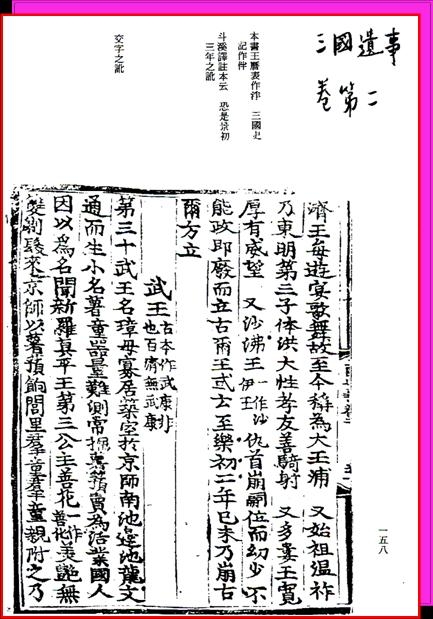 三國遺事
卷第二
本書王曆表作泮 三國史
記作伴
斗溪譯註本云 恐是景初
三年之訛
交字之訛
濟王每遊宴歌舞故至今稱爲大王浦 又始祖温祚
乃東明第三子体洪大性孝友善騎射 又多婁王寬
厚有威望 又沙沸王 一作沙伊王 仇首崩嗣位而幼少不
能政即廢而立古爾王或云至樂初二年己未乃崩古
爾方立
武王 古本作武康非也百濟無武康
第三十武王名璋母寡居築室扵京師南池邊池龍文
通而生小名薯童器量難測常掘薯蕷賣爲活業國人
因以爲名聞新羅真平王第三公主善花一作善化美艷無
雙剃髮來京師以薯蕷餉閭里羣童羣童親附之乃
一五八